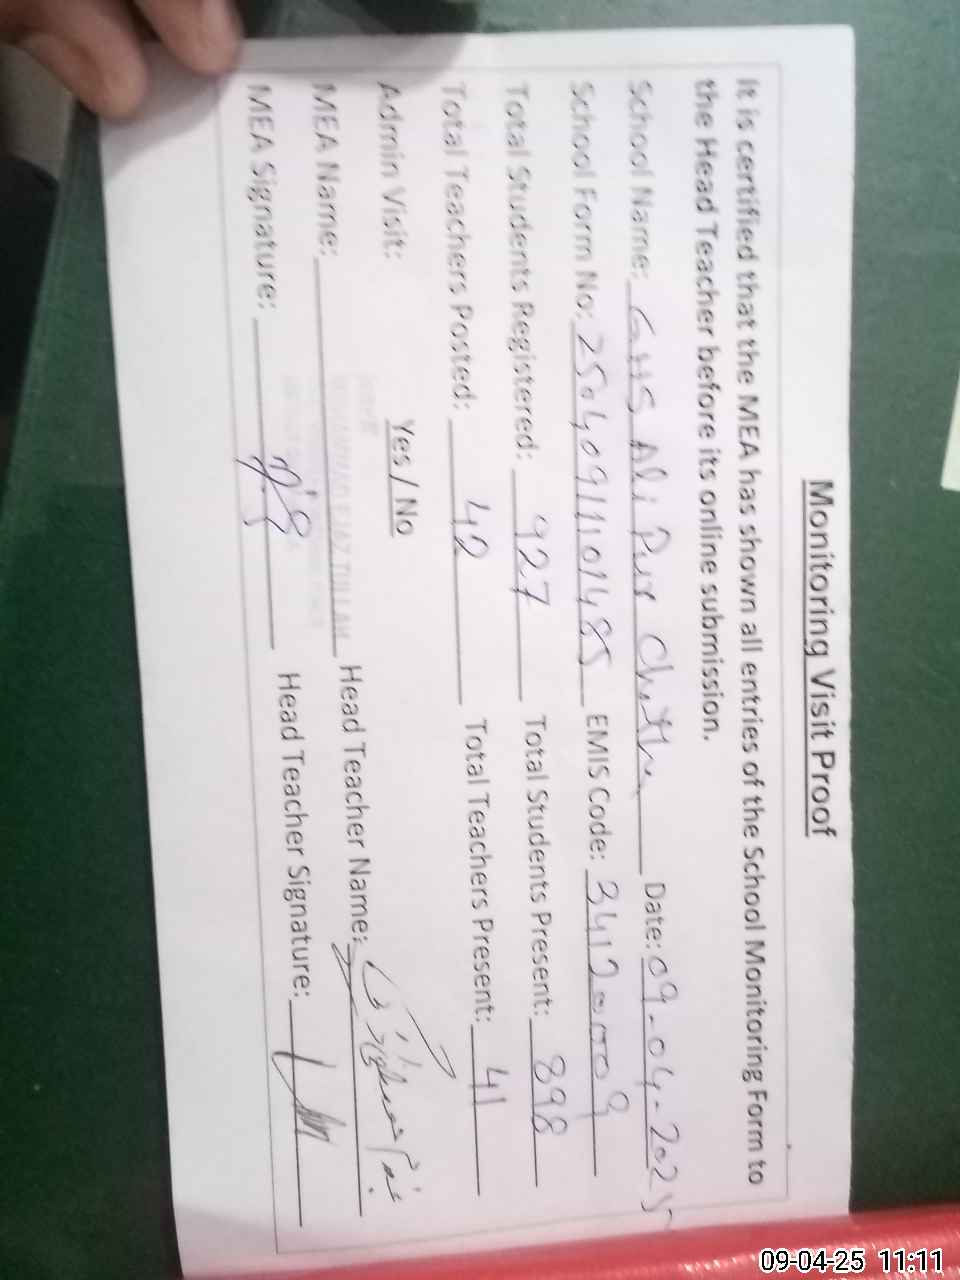 Monitoring Visit Proof
It is certified that the MEA has shown all entries of the School Monitoring Form to
the Head Teacher before its online submission.
School Name: GHS Ali Pur Chattha Date: 09-04-2025
School Form No: 2504091101485 EMIS Code: 34120009
Total Students Registered: 927 Total Students Present: 898
Total Teachers Posted: 42 Total Teachers Present: 41
Admin Visit: Yes / No
MEA Name: MUHAMMAD EJAZ TULLAH Head Teacher Name:
MEA Signature: Head Teacher Signature:
09-04-25 11:11